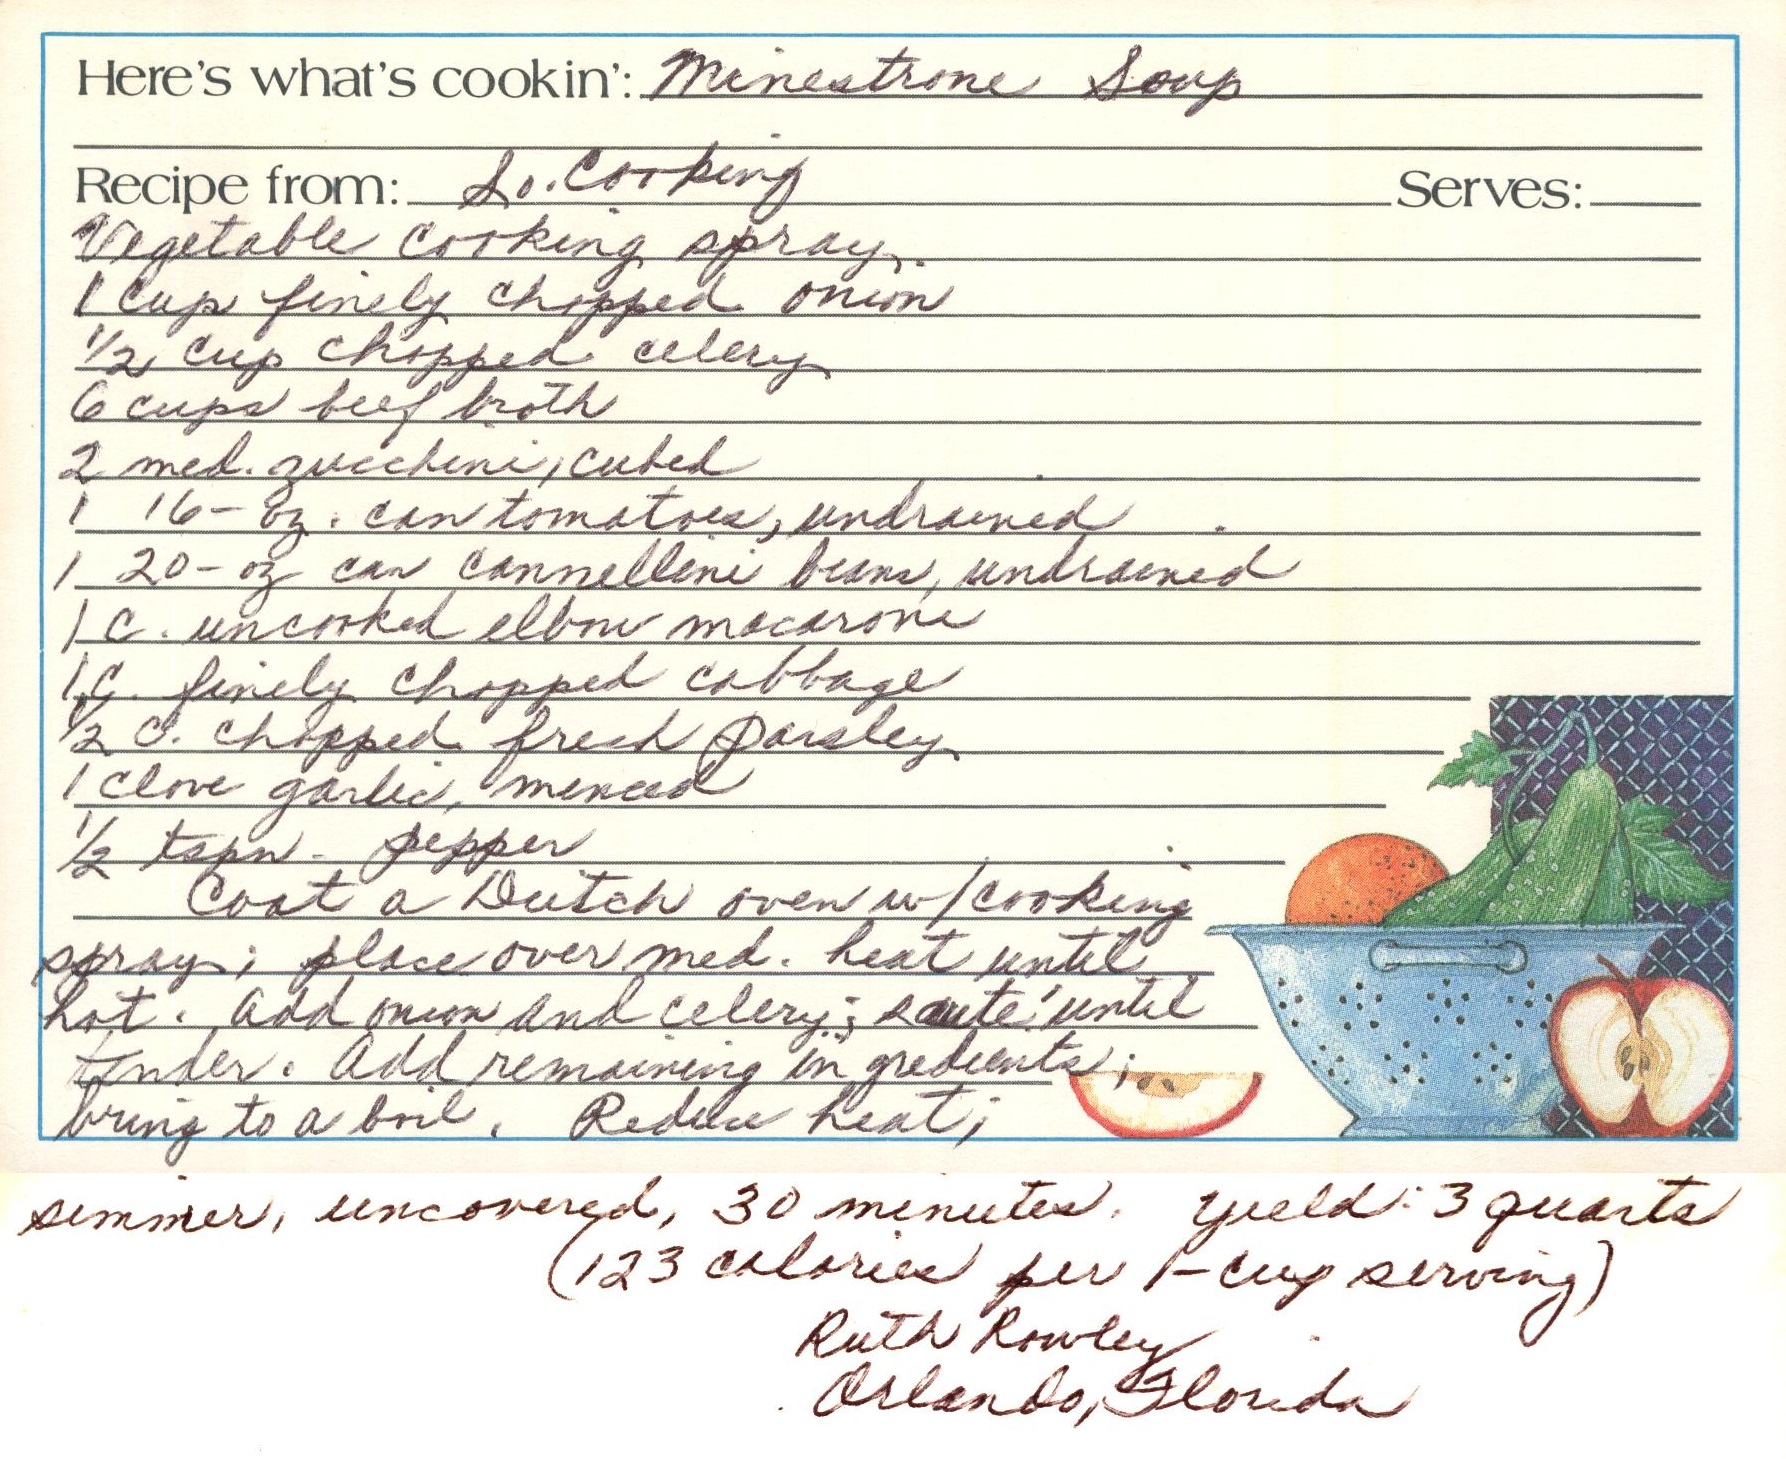 Here's what's cookin': Minestrone Soup
Recipe from: So. Cooking Serves:
Vegetable cooking spray.
1 cup finely chopped onion
1/2 cup chopped celery
6 cups beef broth
2 med. zucchini, cubed
1 16-oz. can tomatoes, undrained
1 20-oz can cannellini beans, undrained
1 c. uncooked elbow macaroni
1 c. finely chopped cabbage
1/2 c. chopped fresh parsley
1 clove garlic, minced
1/2 tspn. pepper
Coat a Dutch oven w/cooking
spray; place over med. heat until
hot. Add onion and celery; sauté until
tender. Add remaining ingredients;
bring to a boil. Reduce heat;
simmer, uncovered, 30 minutes. Yield: 3 quarts
(123 calories per 1-cup serving)
Ruth Rowley
Orlando, Florida